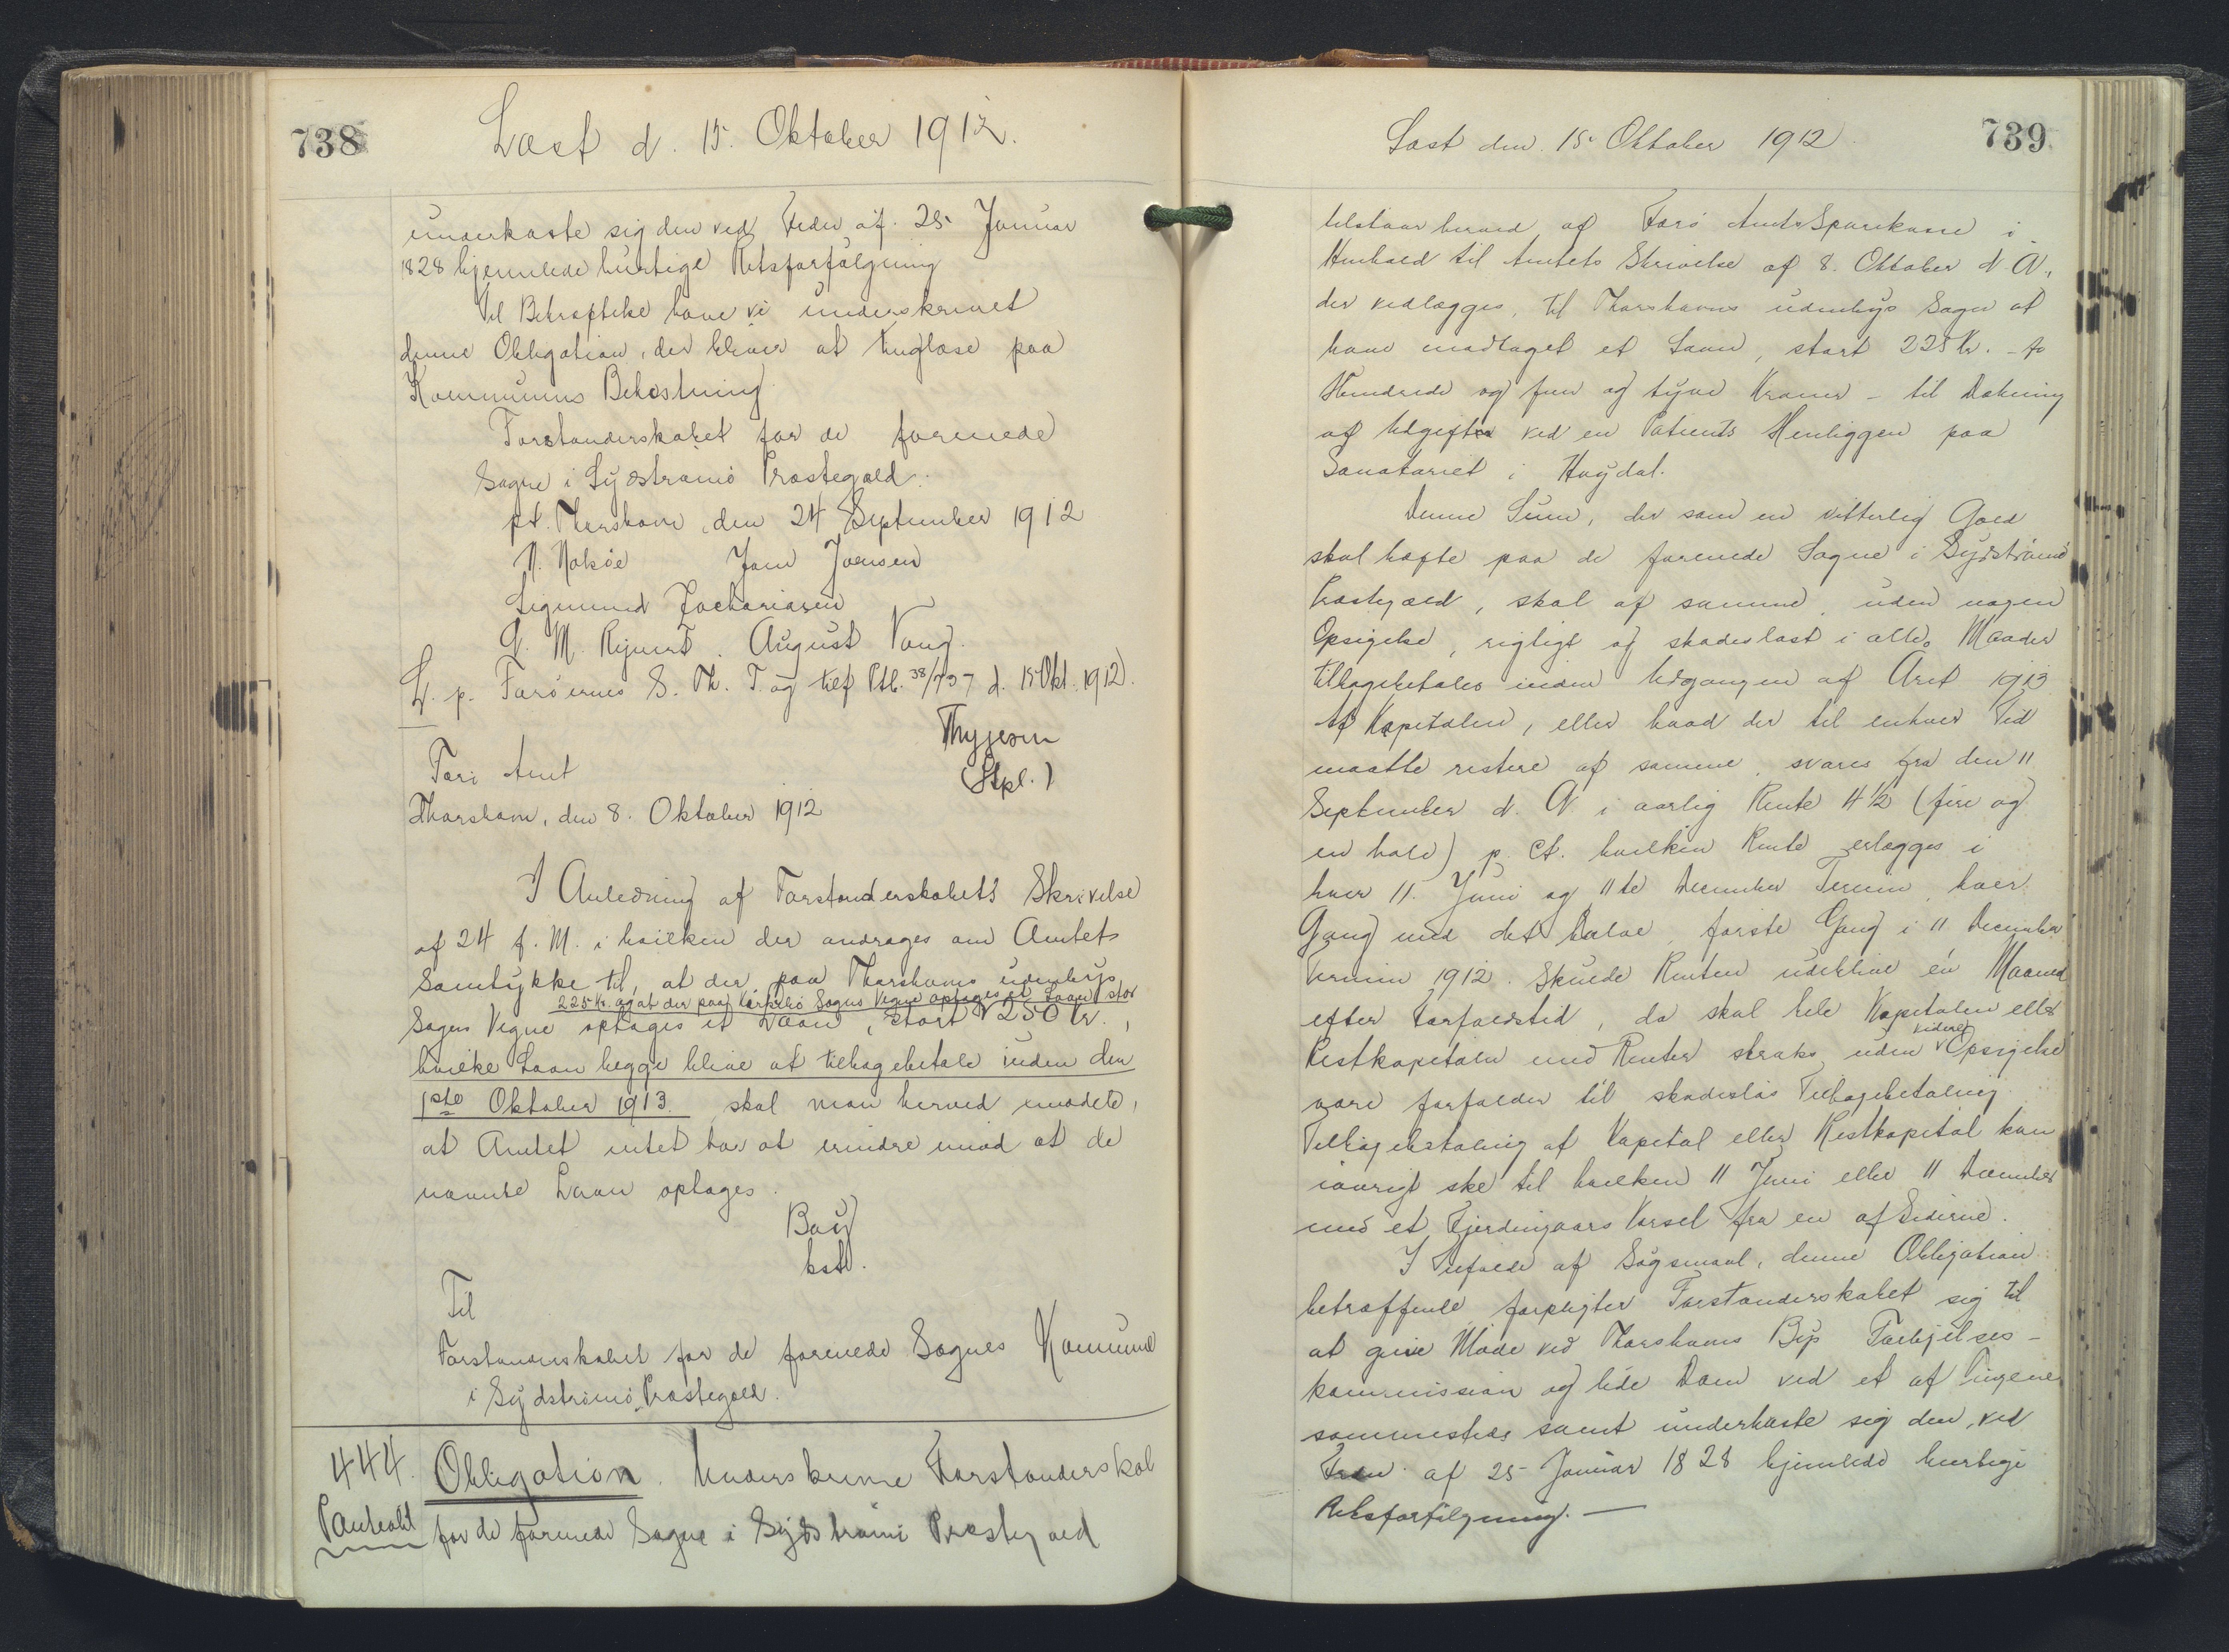 738
Læst d. 15. Oktober 1912.
underkaste sig den ved Frdn. af 25 Januar
1828 hjemlede hurtige Retsforfølgning
Til Bekræftelse have vi underskrevet
denne Obligation, der bliver at tinglæse paa
Kommunens Bekostning.
Forstanderskabet for de forenede
Sogne i Sydstrømø Præstegæld.
pt. Thorshavn, den 24 September 1912
N. Nolsøe Joen Joensen
Sigmund Zachariasen
G. M. Rejnert. August Vang.
L. p. Færøernes S. Th. T. og tilf Ptb. 38/737 d. 15 Okt. 1912).
Thygesen
(Stpl.)
Færø Amt
Thorshavn, den 8. Oktober 1912
I Anledning af Forstanderskabets Skrivelse
af 24 f. M. i hvilken der andrages om Amtets
Samtykke til, at der paa Thorshavns udenbys
225 Kr. og at der paa Kirkebø Sogns Vegne optages et Laan stor
Sogns Vegne optages et Laan, stort 250 Kr.,
hvilke Laan begge blive at tilbagebetale inden den
1ste Oktober 1913. skal man herved meddele,
at Amtet intet har at erindre imod at de
nævnte Laan optages.
Bærg
kst.
Til
Forstanderskabet for de forenede Sognes Kommune
i Sydstrømø Præstegæld.
444.
Panteobl
Obligation. Underskrevne Forstanderskab
for de forenede Sogne i Sydstrømø Præstegæld
739
Læst den 15 Oktober 1912.
tilstaar herved af Færø Amts Sparekasse i
Henhold til Amtets Skrivelse af 8. Oktober d. A.,
der vedlægges, til Thorshavns udenbys Sogn at
have modtaget et Laan, stort 225 Kr. - to
Hundrede og fem og tyve Kroner - til Dækning
af Udgifter ved en Patients Henliggen paa
Sanatoriet i Hoydal.
Denne Sum, der som en vitterlig Gæld
skal hæfte paa de forenede Sogne i Sydstrømø
Præstegæld, skal af samme, uden nogen
Opsigelse, rigtigt og skadesløst i alle Maader
tilbagebetales inden Udgangen af Aret 1913
Af Kapitalen, eller hvad der til enhver Tid
maatte restere af samme, svares fra den 11
September d. A. i aarlig Rente 4½ (fire og
en halv) p. Ct. hvilken Rente erlægges i
hver 11. Juni og 11te December Termin, hver
Gang med det halve, første Gang i 11 December
Termin 1912. Skulde Renten udeblive én Maaned
efter Forfaldstid, da skal hele Kapitalen eller
Restkapitalen med Renter straks uden videre Opsigelse
være forfalden til skadesløs Tilbagebetaling.
Tilbagebetaling af Kapital eller Restkapital kan
iøvrigt ske til hvilken 11 Juni eller 11 December
med et Fjerdingaars Varsel fra en af Siderne.
I Tilfælde af Søgsmaal, denne Obligation
betræffende forpligter Forstanderskabet sig til
at give Møde ved Thorshavns Bys Forligelses-
kommission og lide Dom ved et af Tingene
sammesteds samt underkaste sig den, ved
Frdn. af 25 Januar 1828 hjemlede hurtige
Retsforfølgning. —